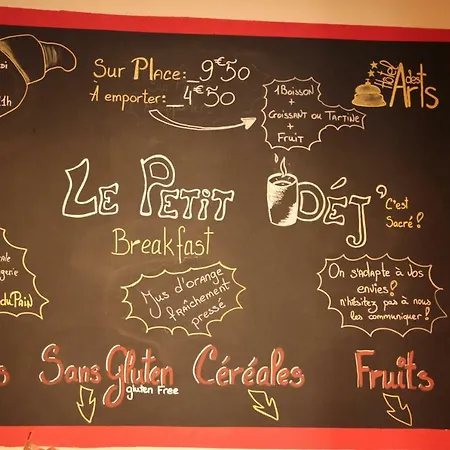 Sur Place: 9€50
A emporter: 4€50
1 Boisson
+
Croissant ou Tartine
+
Fruit
Hôtel
des
Arts
di
11h
Le Petit Déj'
C'est
Sacré!
Breakfast
ale
gerie
du Pain
Jus d'orange
fraîchement
pressé
On s'adapte à vos
envies!
n'hésitez pas à nous
les communiquer!
s
Sans Gluten
gluten Free
Céréales
Fruits